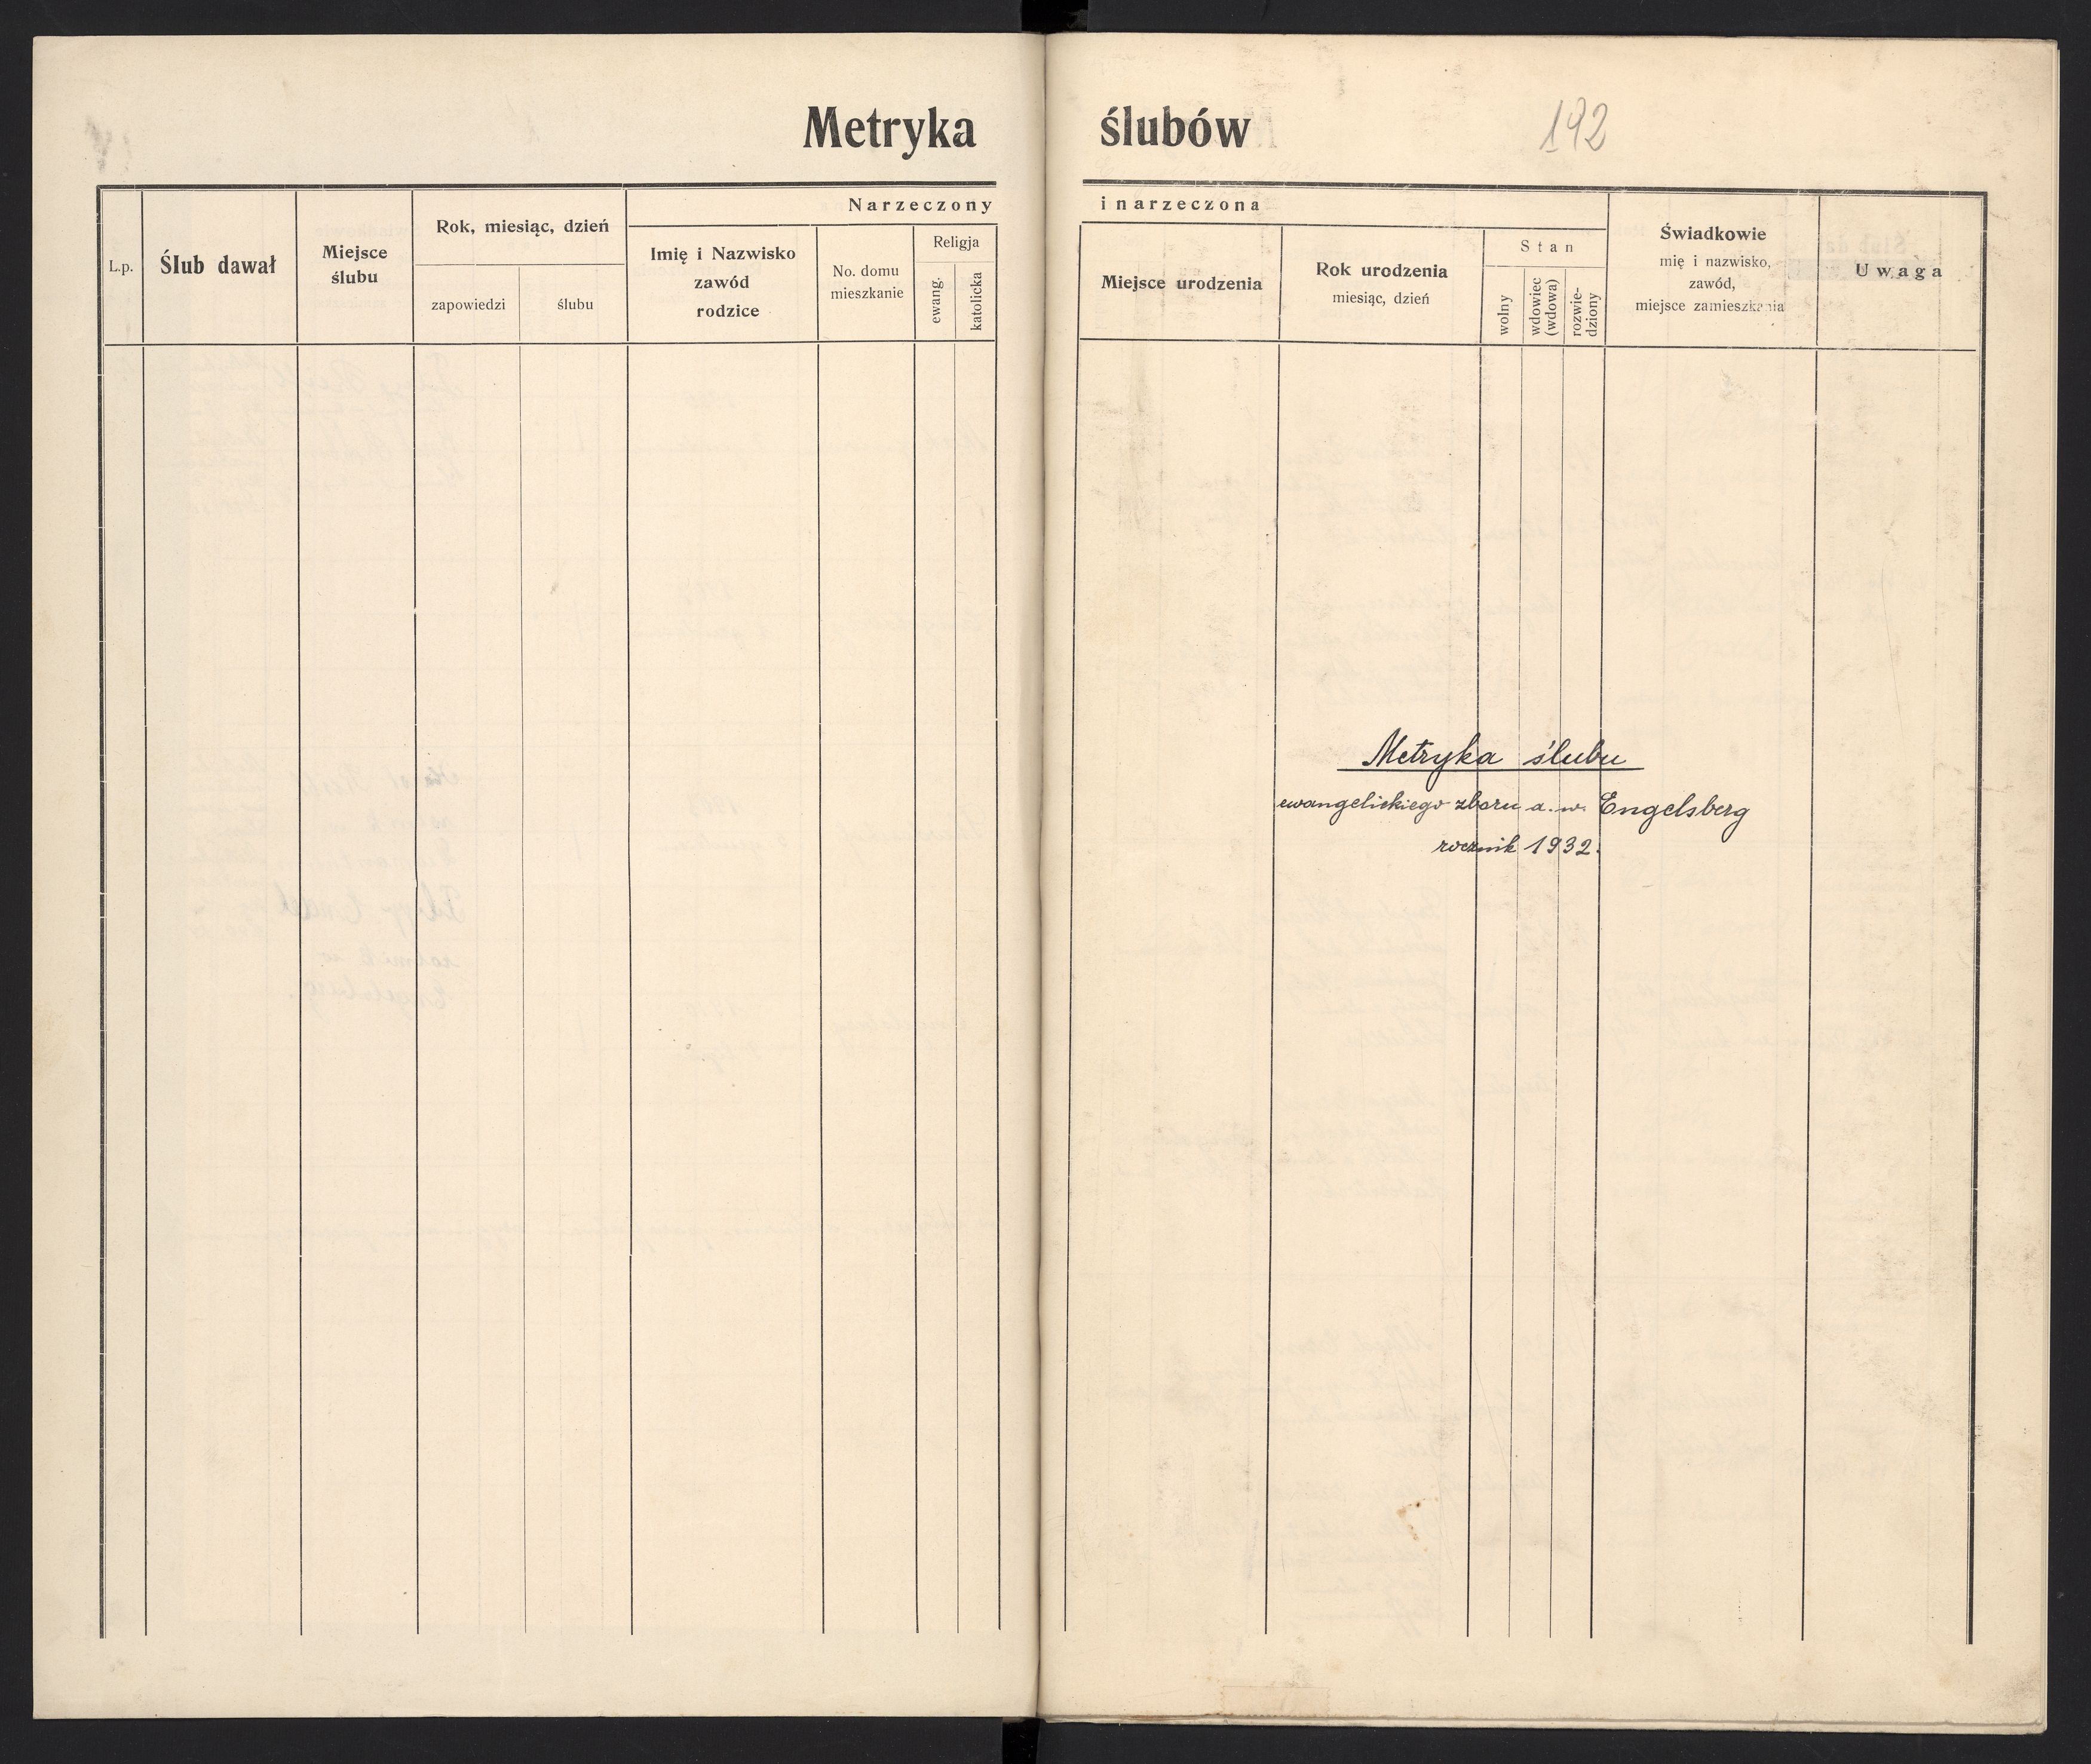 Metryka ślubów
192
L.p.
Ślub dawał
Miejsce
ślubu
Rok, miesiąc, dzień
zapowiedzi
ślubu
Narzeczony
Imię i Nazwisko
zawód
rodzice
No. domu
mieszkanie
Religja
ewang.
katolicka
i narzeczona
Miejsce urodzenia
Rok urodzenia
miesiąc, dzień
Stan
wolny
wdowiec
(wdowa)
rozwie-
dziony
Świadkowie
mię i nazwisko,
zawód,
miejsce zamieszkania
Uwaga
Metryka ślubu
ewangelickiego zboru a. w. Engelsberg
rocznik 1932.